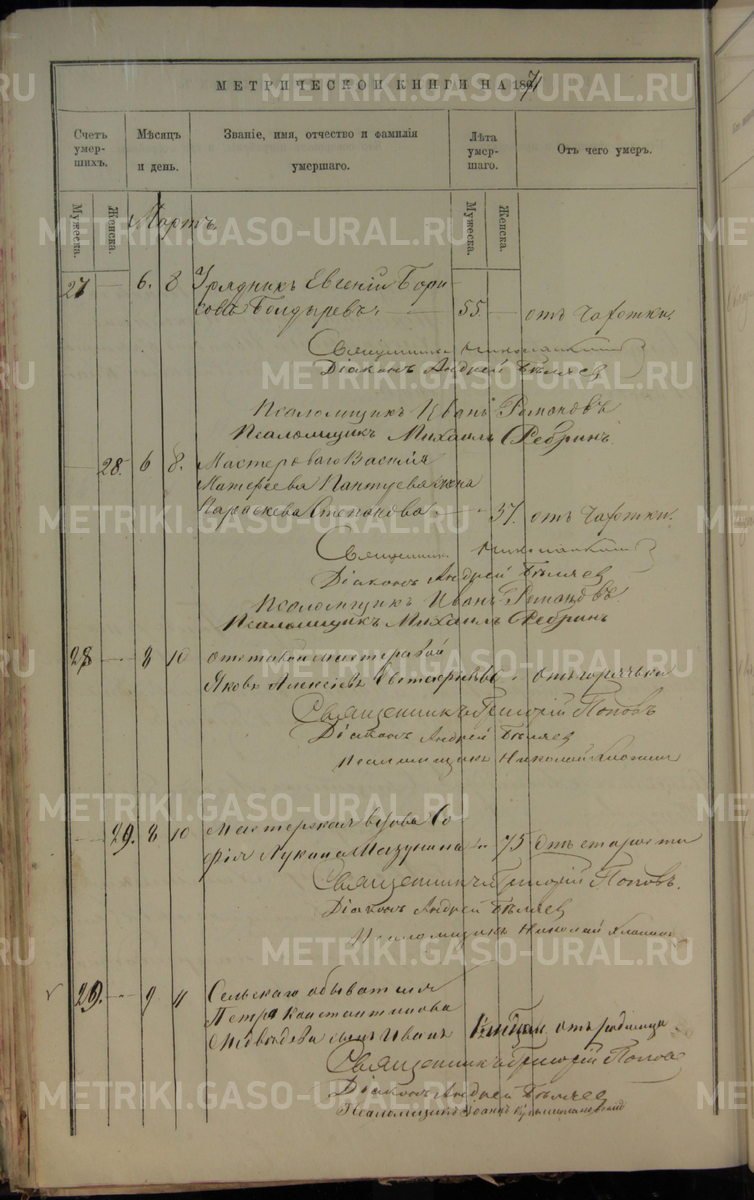 МЕТРИЧЕСКОЙ КНИГИ НА 1871
Счетъ умер-шихъ.
Мѣсяцъ и день.
Званіе, имя, отчество и фамилія умершаго.
Лѣта умер-шаго.
Отъ чего умеръ.
Мужеска.
Женска.
Мужеска.
Женска.
Мартъ.
27 6. 8 Урядникъ Евгеній Бори-
совъ Болдыревъ 55 отъ чахотки.
Священникъ
Діаконъ Андрей Бѣляев
Псаломщикъ Иванъ Романовъ
Псаломщикъ Михаилъ Ребринъ
28. 6 8. Мастероваго Василія
Матвѣева Пантуева жена
Параскева Степанова 37. отъ чахотки.
Священникъ
Діаконъ Андрей Бѣляев
Псаломщикъ Иванъ Романовъ
Псаломщикъ Михаилъ Ребринъ
28 8 10 отставной мастеровой
Яковъ Алексѣевъ отъ горячки
Священникъ Григорій Поповъ
Діаконъ Андрей Бѣляев
Псаломщикъ Николай
29. 8 10 Мастерская вдова Со
фія Лукина Мазунина 75 отъ старости
Священникъ Григорій Поповъ.
Діаконъ Андрей Бѣляев
Псаломщикъ Николай
29. 9 11 Сельскаго обывателя
Петра Константинова
сынъ Иванъ отъ родимца
Священникъ Григорій Попов
Діаконъ Андрей Бѣляев
Псаломщикъ
METRIKI.GASO-URAL.RU